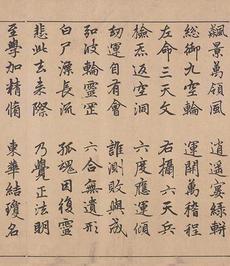 飈景萬領風 逍遥宴綠軿
総御九空輪 運開萬稽程
左命三天文 右攝六天兵
炁返空洞 六度應運傾
劫運自有會 誰測敗與成
波輪靈罡 六合無遺形
白尸漂長流 孤魂因復靈
悲此去来際 乃覺正法明
至學加精脩 東華結瓊名